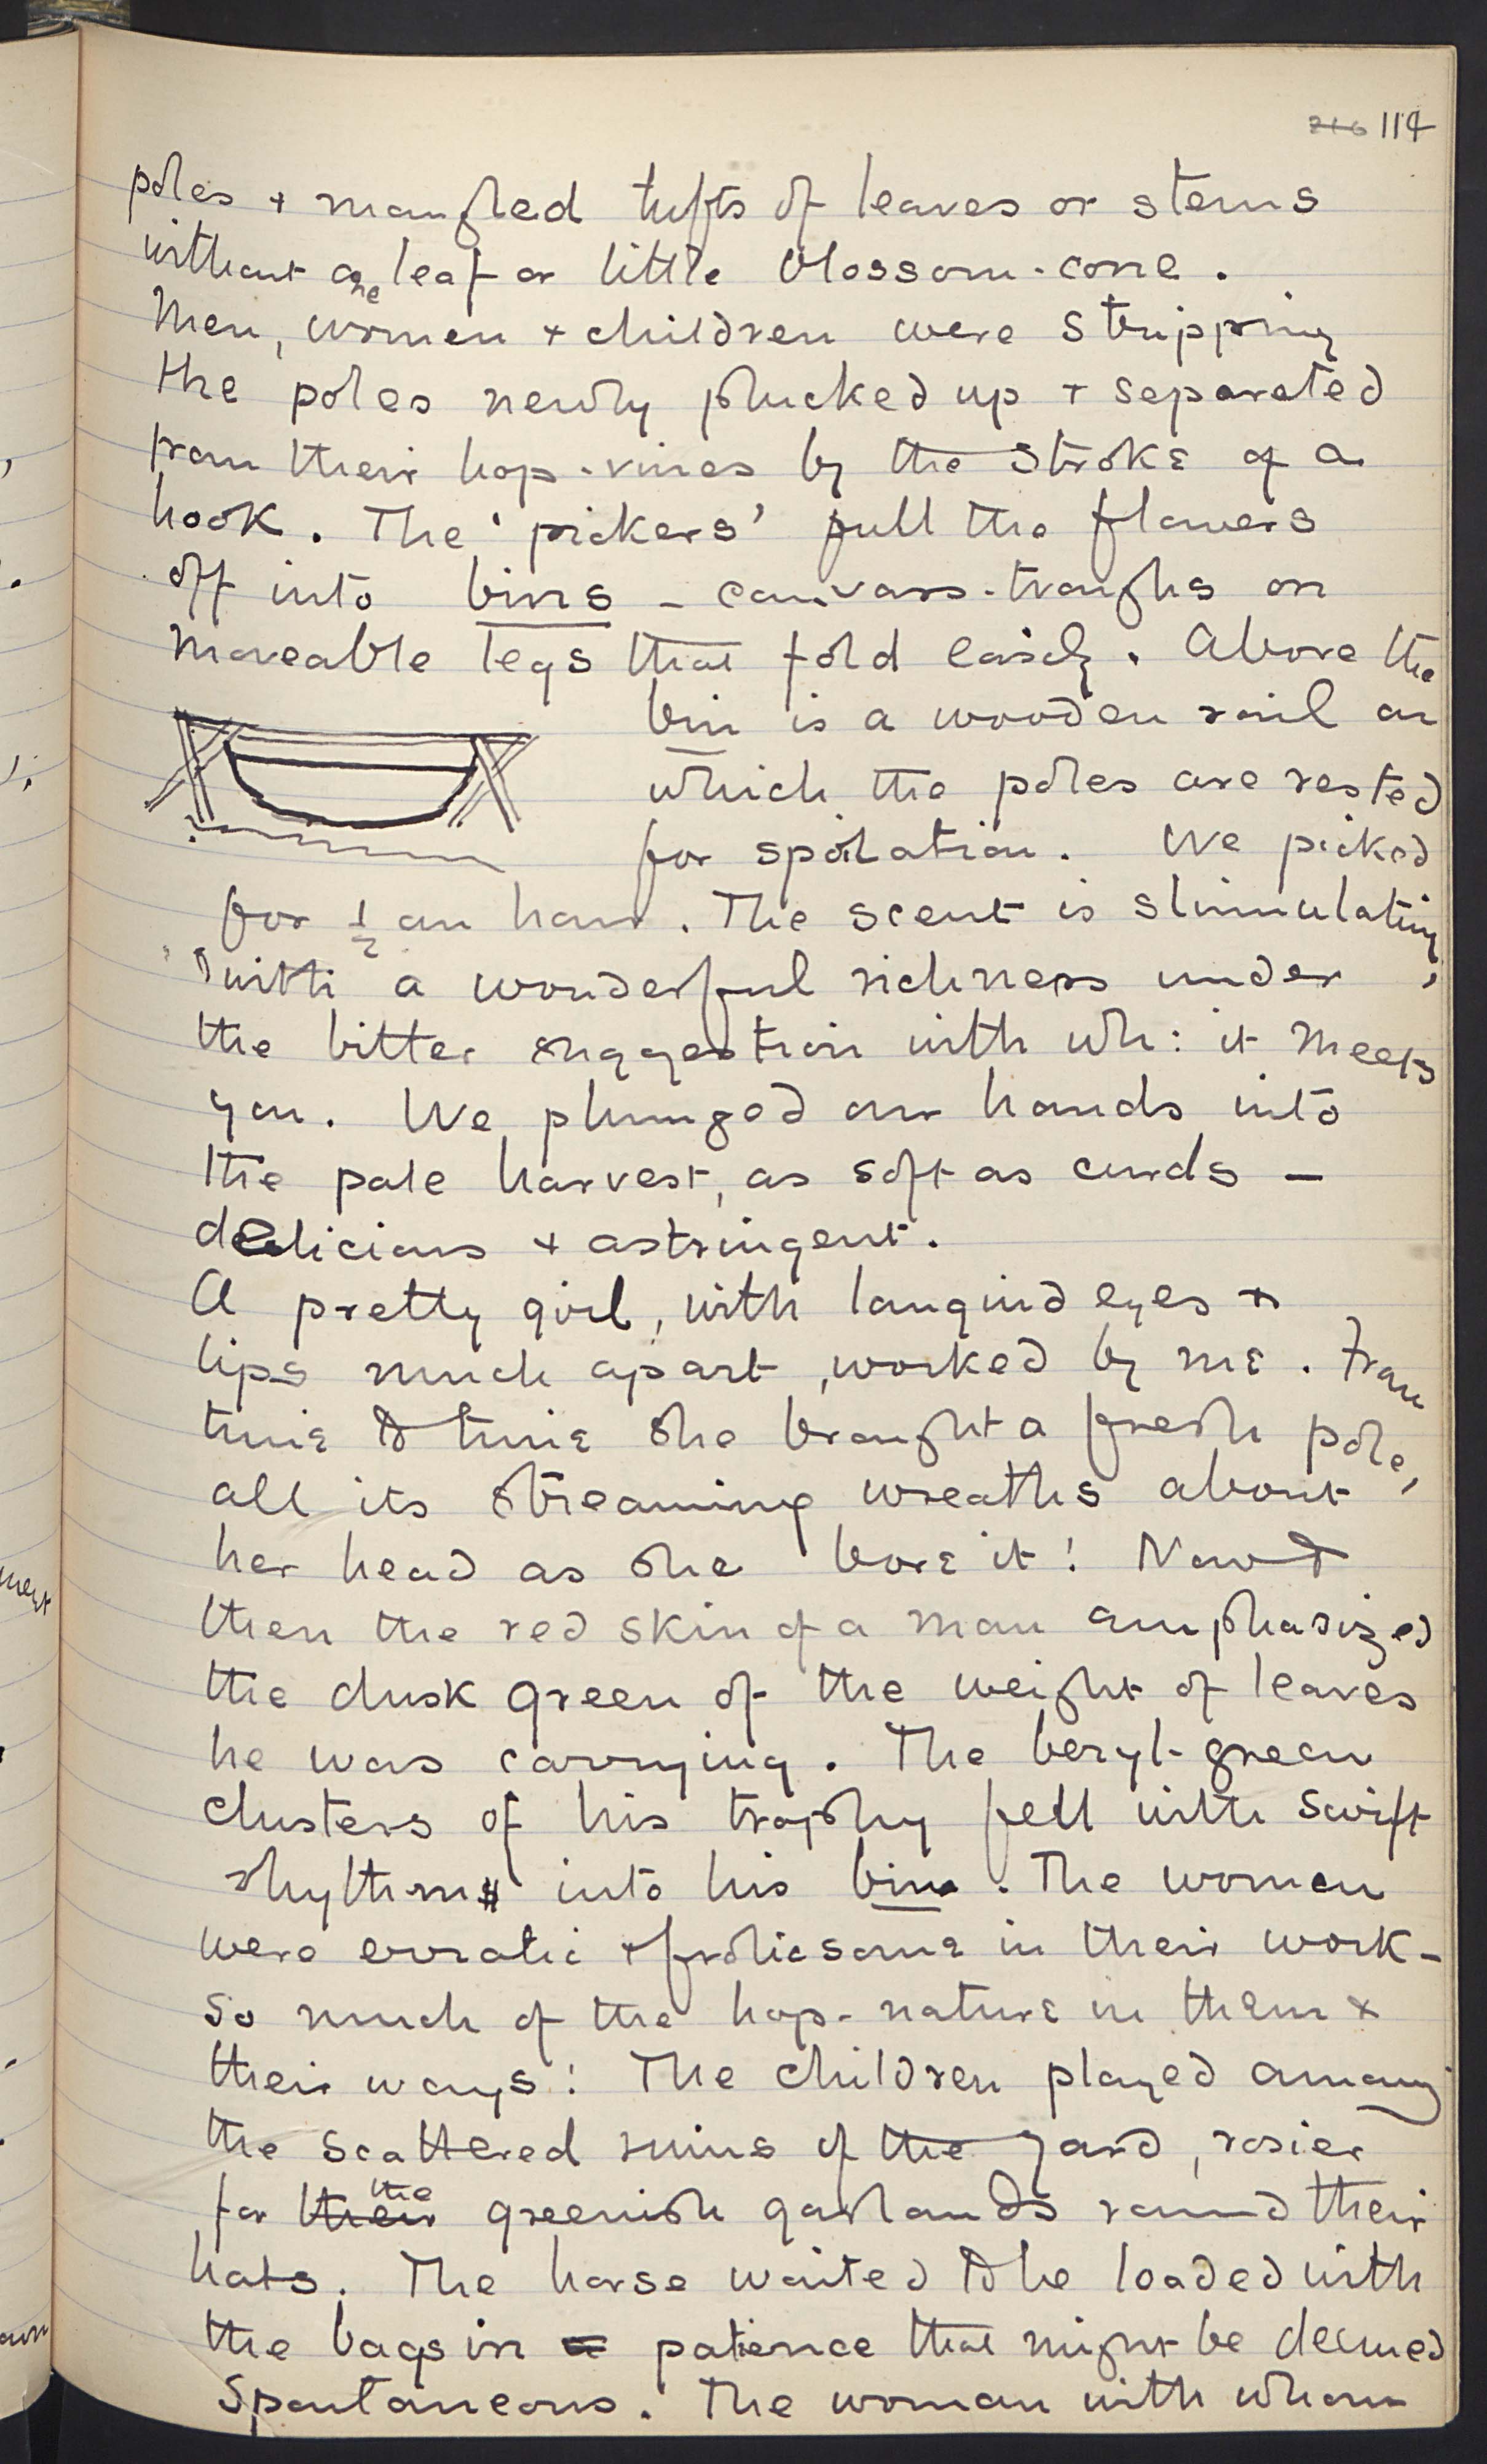 216 114
poles + mangled tufts of leaves or stems
without one leaf or little blossom-cone.
Men, women + children were stripping
the poles newly plucked up + separated
from their hop-vines by the stroke of a
hook. The 'pickers' pull the flowers
off into bins – canvass-troughs on
moveable legs that fold easily. Above the
bin is a wooden rail on
which the poles are rested
for spoilation. We picked
for ½ an hour. The scent is stimulating,
with a wonderful richness under
the bitter suggestion with wh: it meets
you. We plunged our hands into
the pale harvest, as soft as curds –
delicious + astringent.
A pretty girl, with languid eyes +
lips much apart, worked by me. From
time to time she brought a fresh pole,
all its streaming wreaths about
her head as she bore it! Now &
then the red skin of a man emphasized
the dusk green of the weight of leaves
he was carrying. The beryl-green
clusters of his trophy fell with swift
rhythm into his bin. The women
were erratic + frolicsome in their work –
so much of the hop-nature in them +
their ways! The children played among
the scattered ruins of the yard, rosier
for their the greenish garlands round their
hats. The horse waited to be loaded with
the bags in a patience that might be deemed
spontaneous. The woman with whom